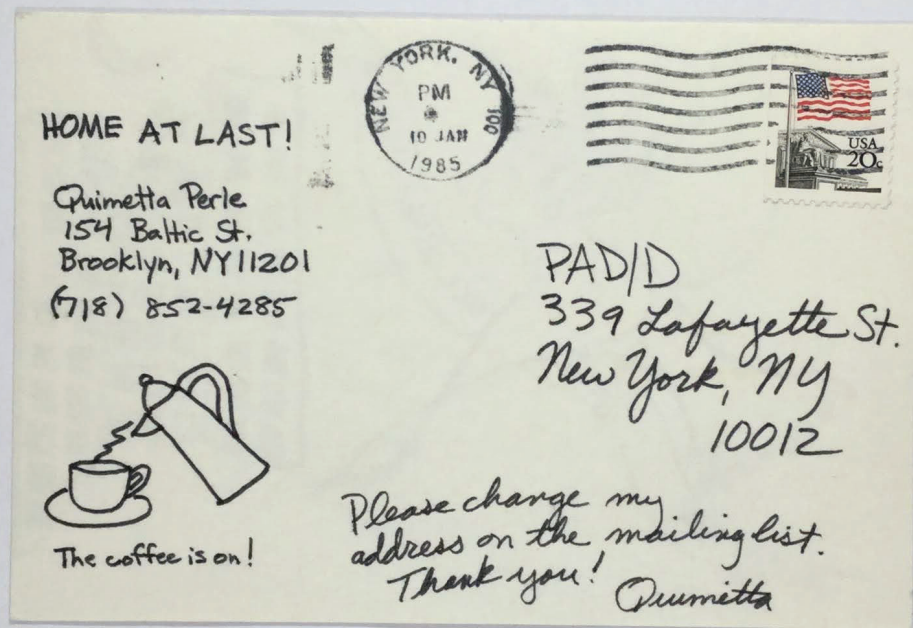 HOME AT LAST!
Quimetta Perle
154 Baltic St.
Brooklyn, NY 11201
(718) 852-4285
The coffee is on!
NEW YORK, NY 100
PM
10 JAN
1985
USA
20c
PAD/D
339 Lafayette St.
New York, NY
10012
Please change my
address on the mailing list.
Thank you!
Quimetta